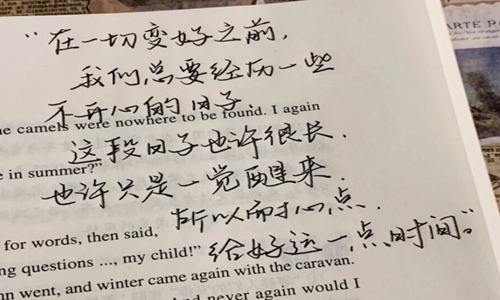 “在一切变好之前，
我们总要经历一些
不开心的日子.
ARTE P
he camels were nowhere to be found. I again
这段日子也许很长.
e in summer?”
也许只是一觉醒来.
for words, then said,
所以耐心点.
ng questions ..., my child!”
给好运一点时间。”
nn went, and winter came again with the caravan.
And never again would I